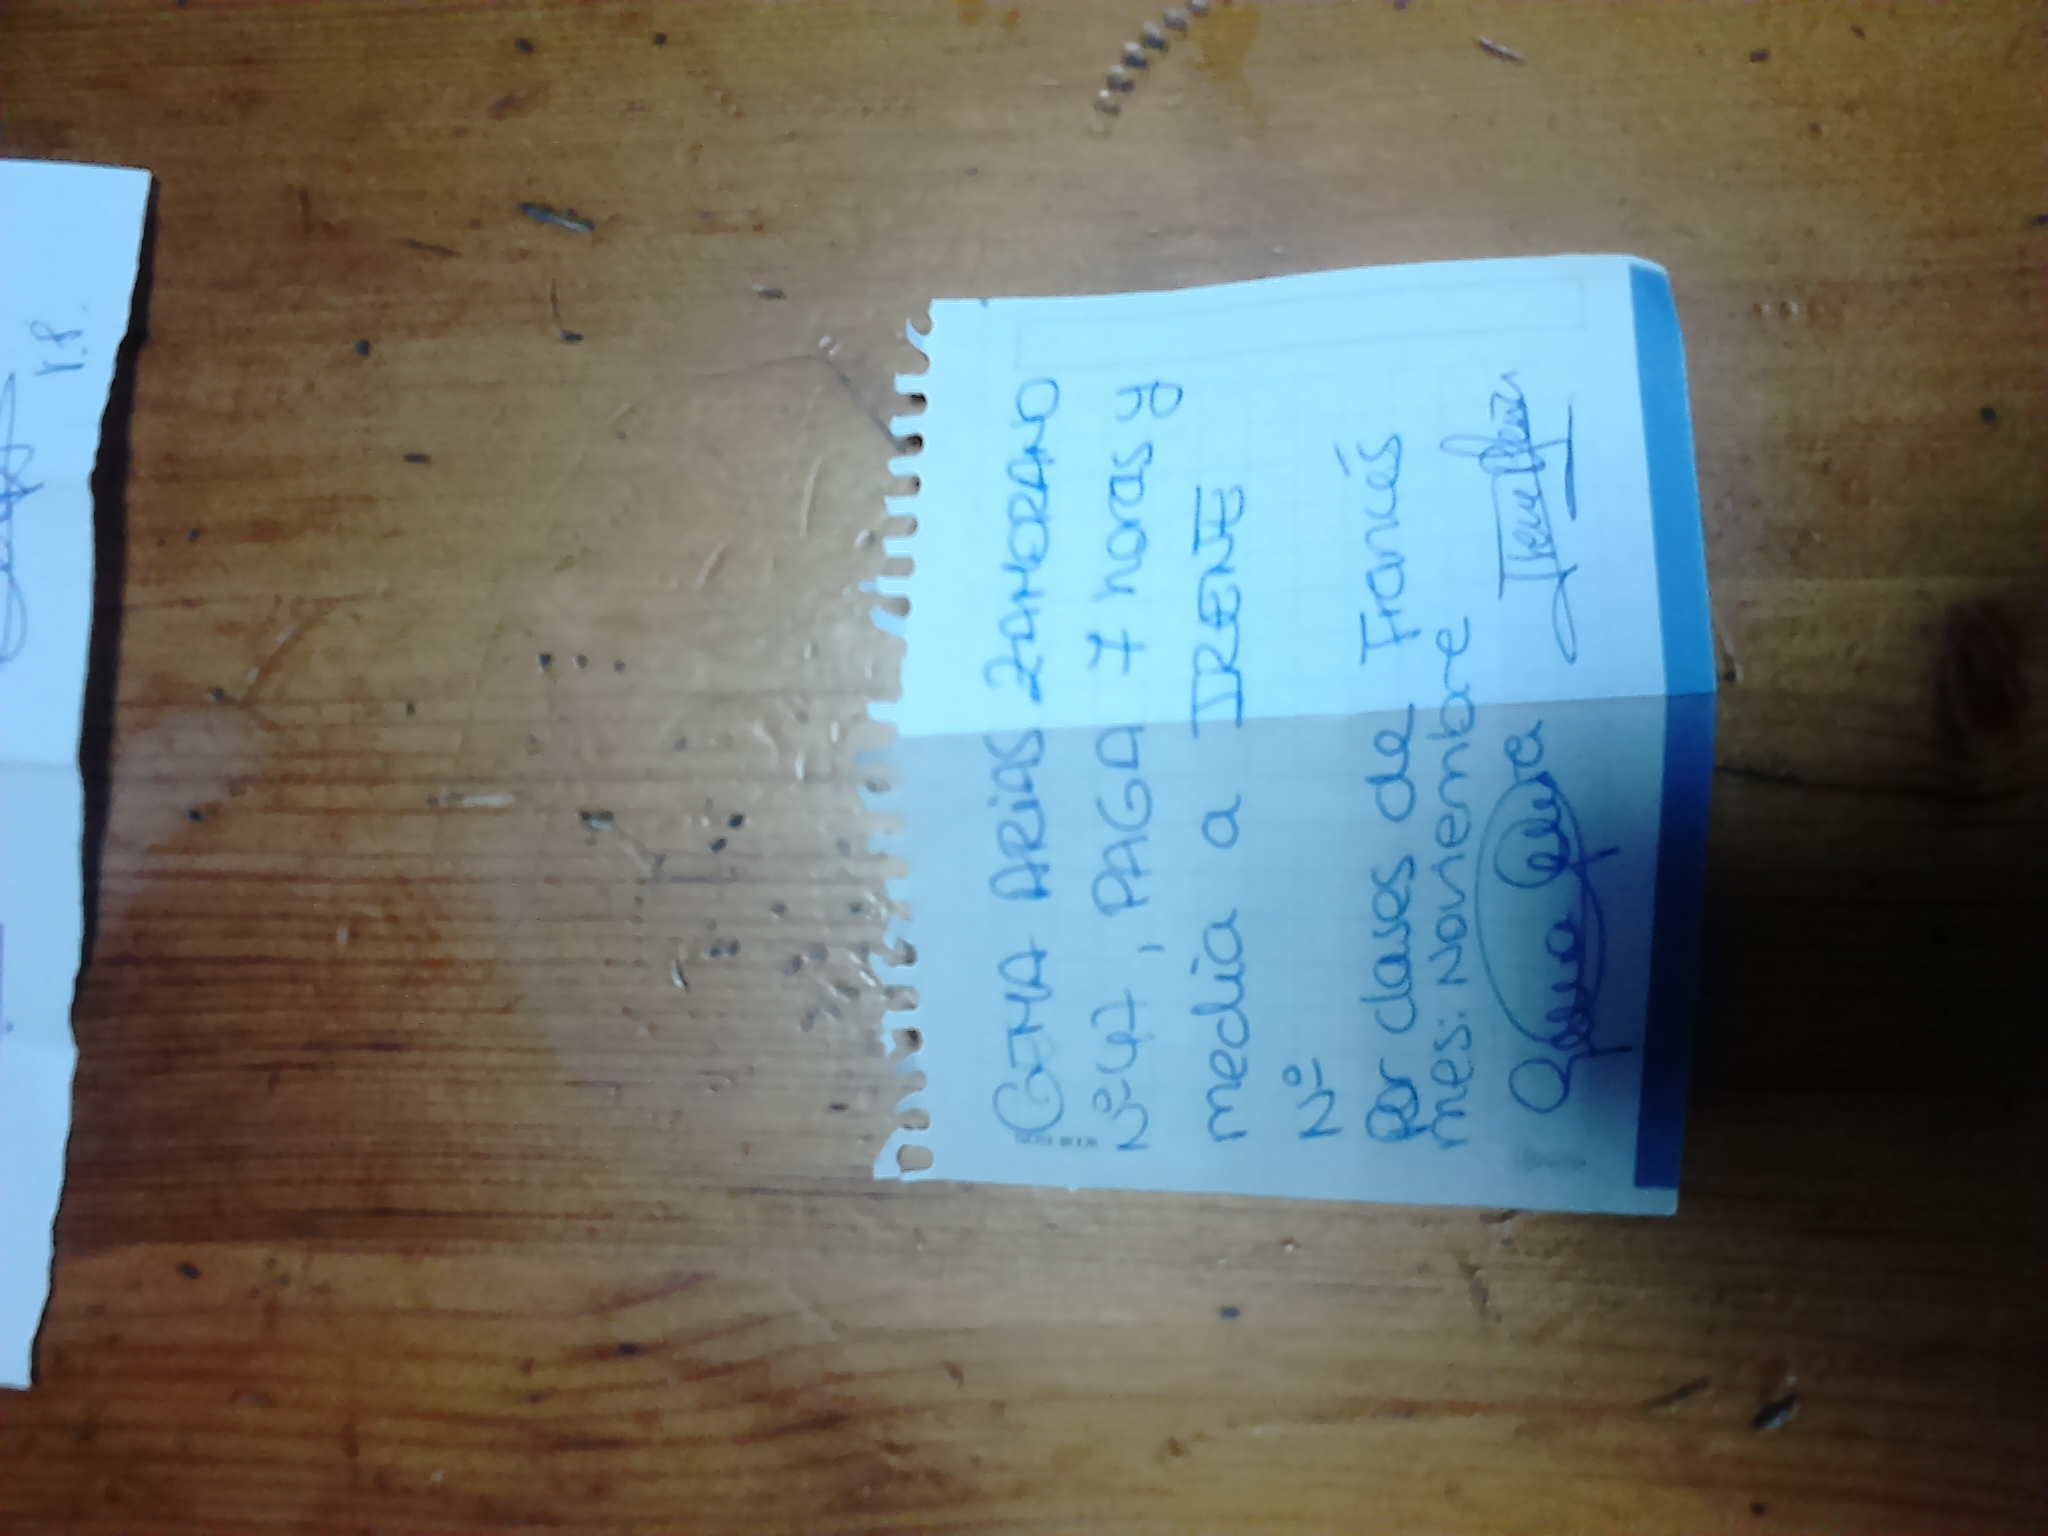 GEMA ARIAS ZAMORANO
Nº 47, PAGA 7 horas y
media a IRENE
Nº
Por clases de Francés
mes: Noviembre